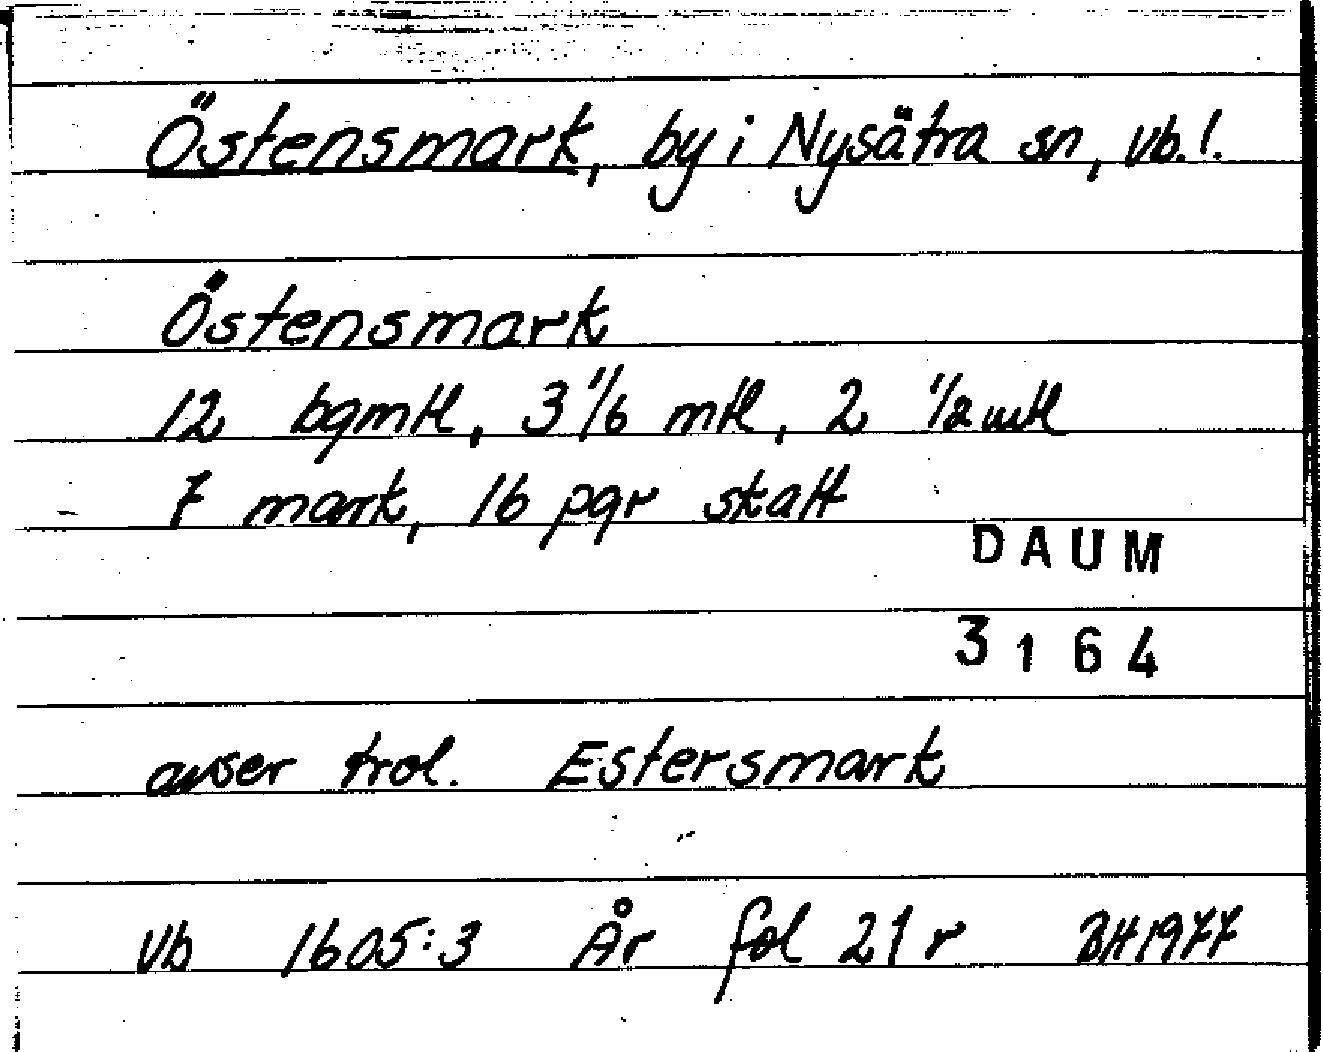 Östensmark, by i Nysätra sn, vb.l.
Östensmark
12 bgmtl, 3 1/6 mtl, 2 1/2 mtl
7 mark, 16 pgr skatt
DAUM
3164
avser trol. Estersmark
Vb 1605:3 År fol 21 r BH 1977